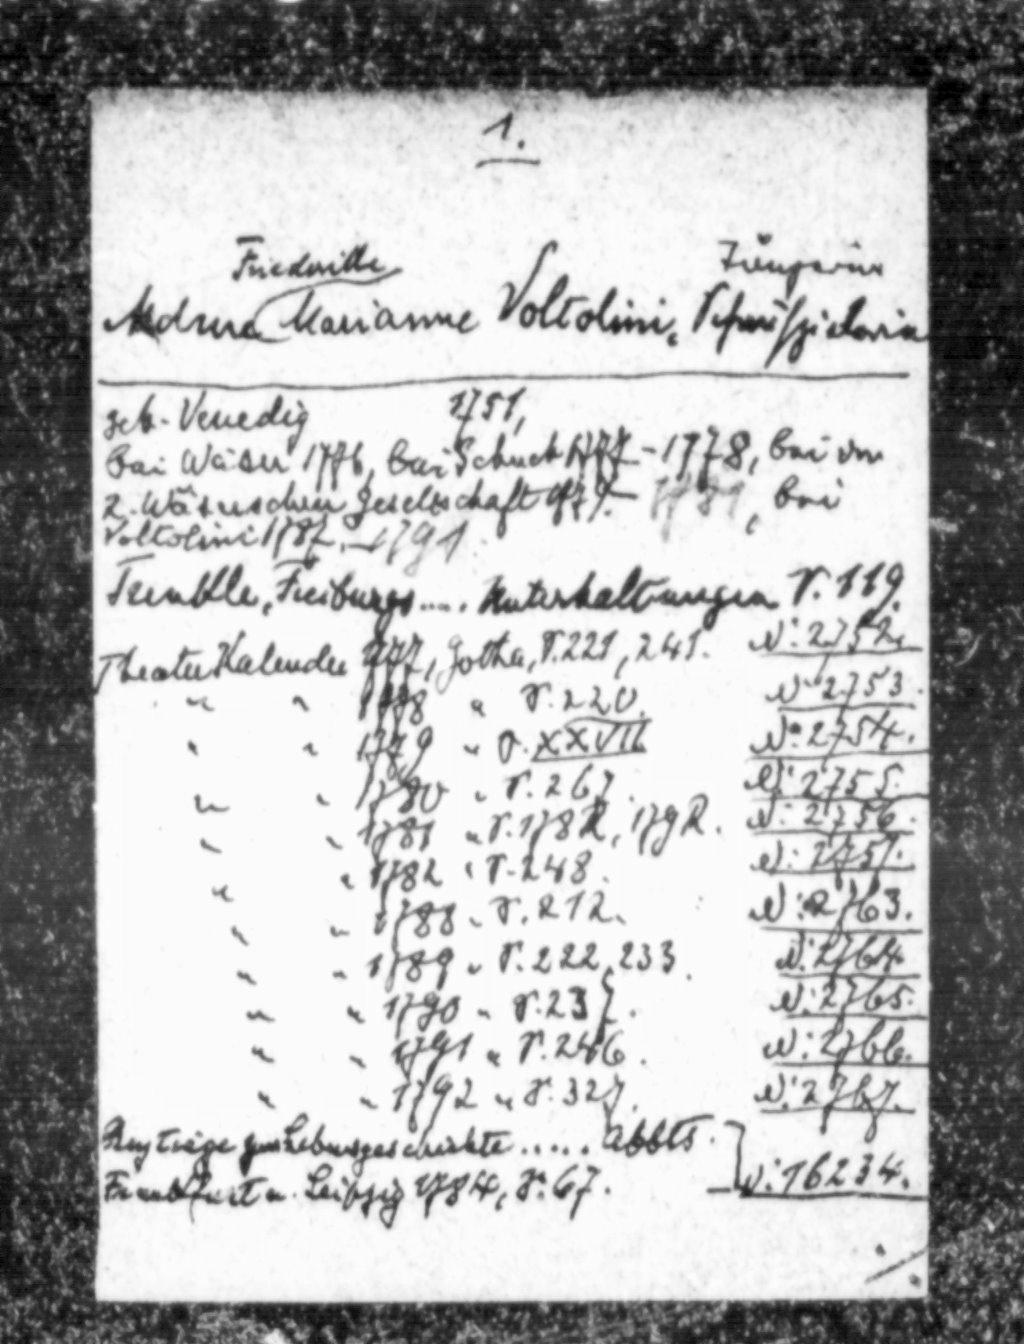 1.
Friedrike Sängerin
Mdme Marianne Voltolini, Schauspielerin
geb. Venedig 1751,
bei Wäser 1776, bei Schuch 1777 - 1778, bei der
z. Wäserschen Gesellschaft 1779 - 1781, bei
Voltolini 1787 - 1791.
Freiburgs.... Unterhaltungen S. 119.
Theater Kalender 1777, Gotha, S. 221, 241. N: 2752.
" " 1778 " S. 220. N: 2753.
" " 1779 " S. XXVII N: 2754.
" " 1780 " S. 267. N: 2755.
" " 1781 " S. 178R, 179R. N: 2756.
" " 1782 " S. 248. N: 2757.
" " 1788 " S. 212. N: 2763.
" " 1789 " S. 222, 233. N: 2764.
" " 1790 " S. 237. N: 2765.
" " 1791 " S. 246. N: 2766.
" " 1792 " S. 327. N: 2767.
Beyträge zur Lebensgeschichte ..... Abbts.
Frankfurt u. Leipzig 1784, S. 67. N: 16234.